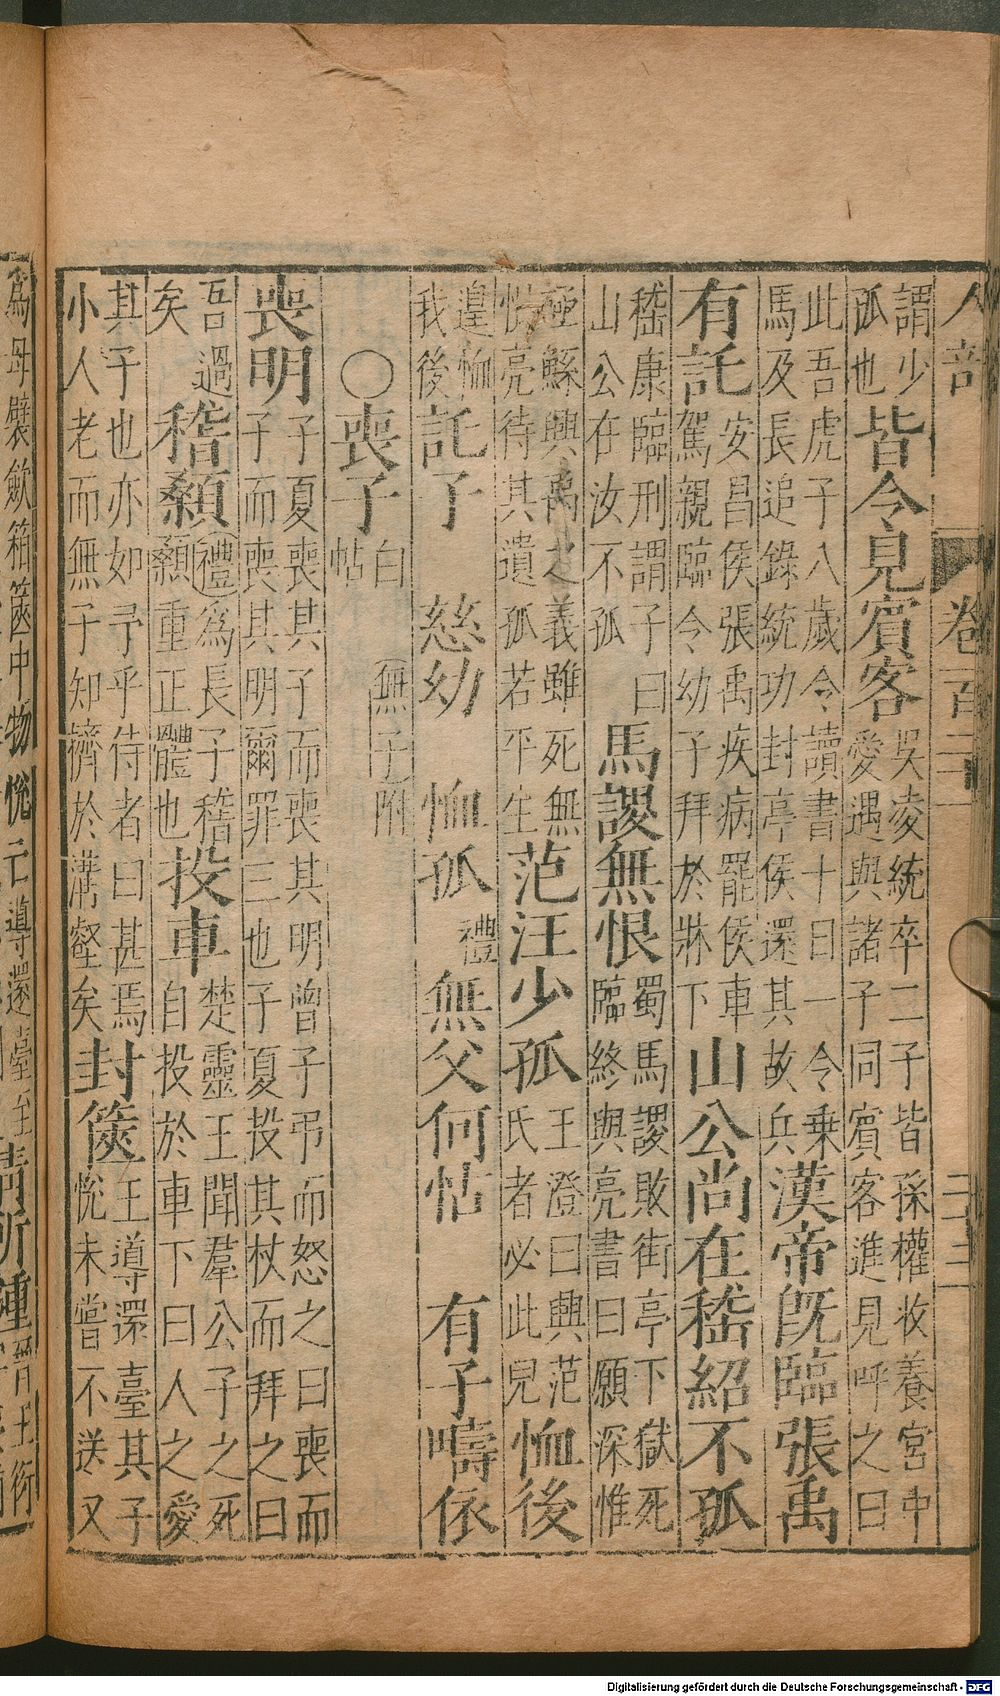 人部 卷百
謂少孤也 皆令見賓客 吳凌統卒二子皆孫權收養宮中愛遇與諸子同賓客進見呼之曰
此吾虎子八歲令讀書十日一令乗馬及長追錄統功封亭侯還其故兵 漢帝旣臨張禹
有託 安昌侯張禹疾病罷侯車駕親臨令幼子拜於牀下 山公尚在嵇紹不孤
嵇康臨刑謂子曰山公在汝不孤 馬謖無恨 蜀馬謖敗街亭下獄死臨終與亮書曰願深惟
殛鯀興禹之義雖死無恨亮待其遺孤若平生 范汪少孤 王澄曰興范氏者必此兒 恤後
遑恤我後 託子 慈幼 恤孤 禮 無父何怙 有子嚋依
○喪子 白帖 無子附
喪明 子夏喪其子而喪其明曾子弔而怒之曰喪而子而喪其明爾罪三也子夏投其杖而拜之曰
吾過矣 稽顙 禮爲長子稽顙重正體也 投車 楚靈王聞羣公子之死自投於車下曰人之愛
其子也亦如予乎侍者曰甚焉小人老而無子知擠於溝壑矣 封篋 王導還臺其子悅未嘗不送又
爲母襞歛箱篋中物悅亡導還臺至 情所鍾 晉王衍
Digitalisierung gefördert durch die Deutsche Forschungsgemeinschaft - DFG